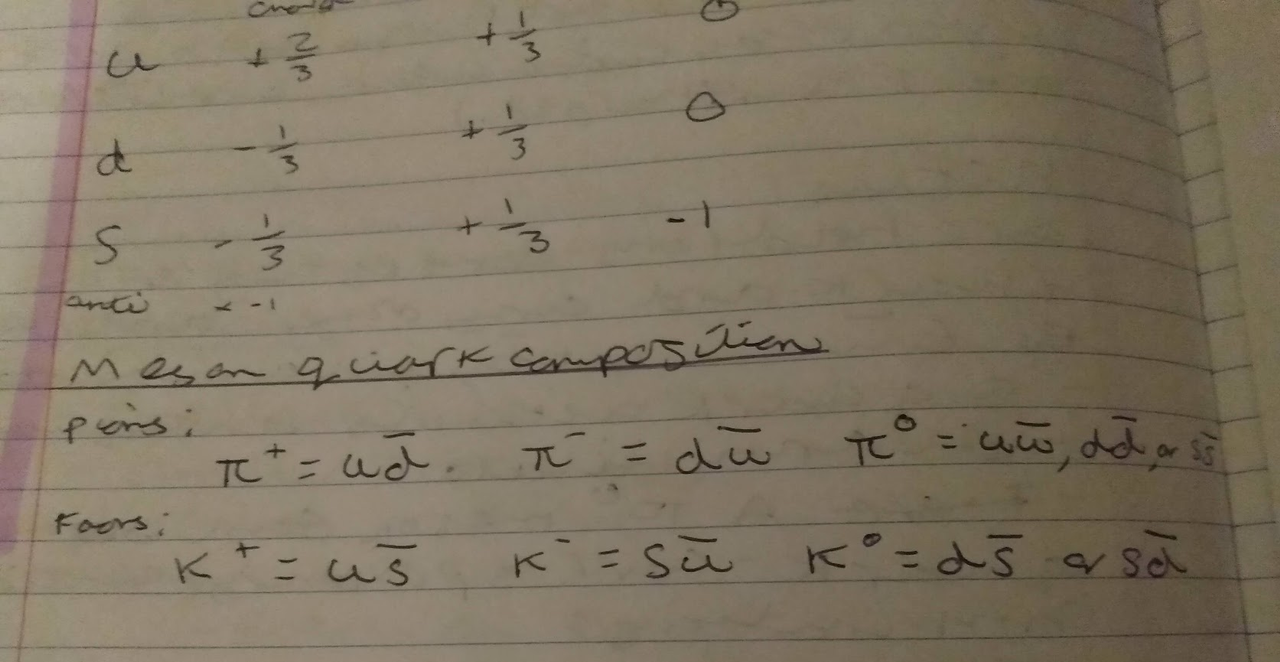 u + 2/3 + 1/3 0
d - 1/3 + 1/3 0
S - 1/3 + 1/3 -1
anti x -1
Meson quark composition
pions:
π⁺ = ud̄. π⁻ = dū π⁰ = uū, dd̄, or ss̄
Kaons:
K⁺ = us̄ K⁻ = sū K⁰ = ds̄ or sd̄